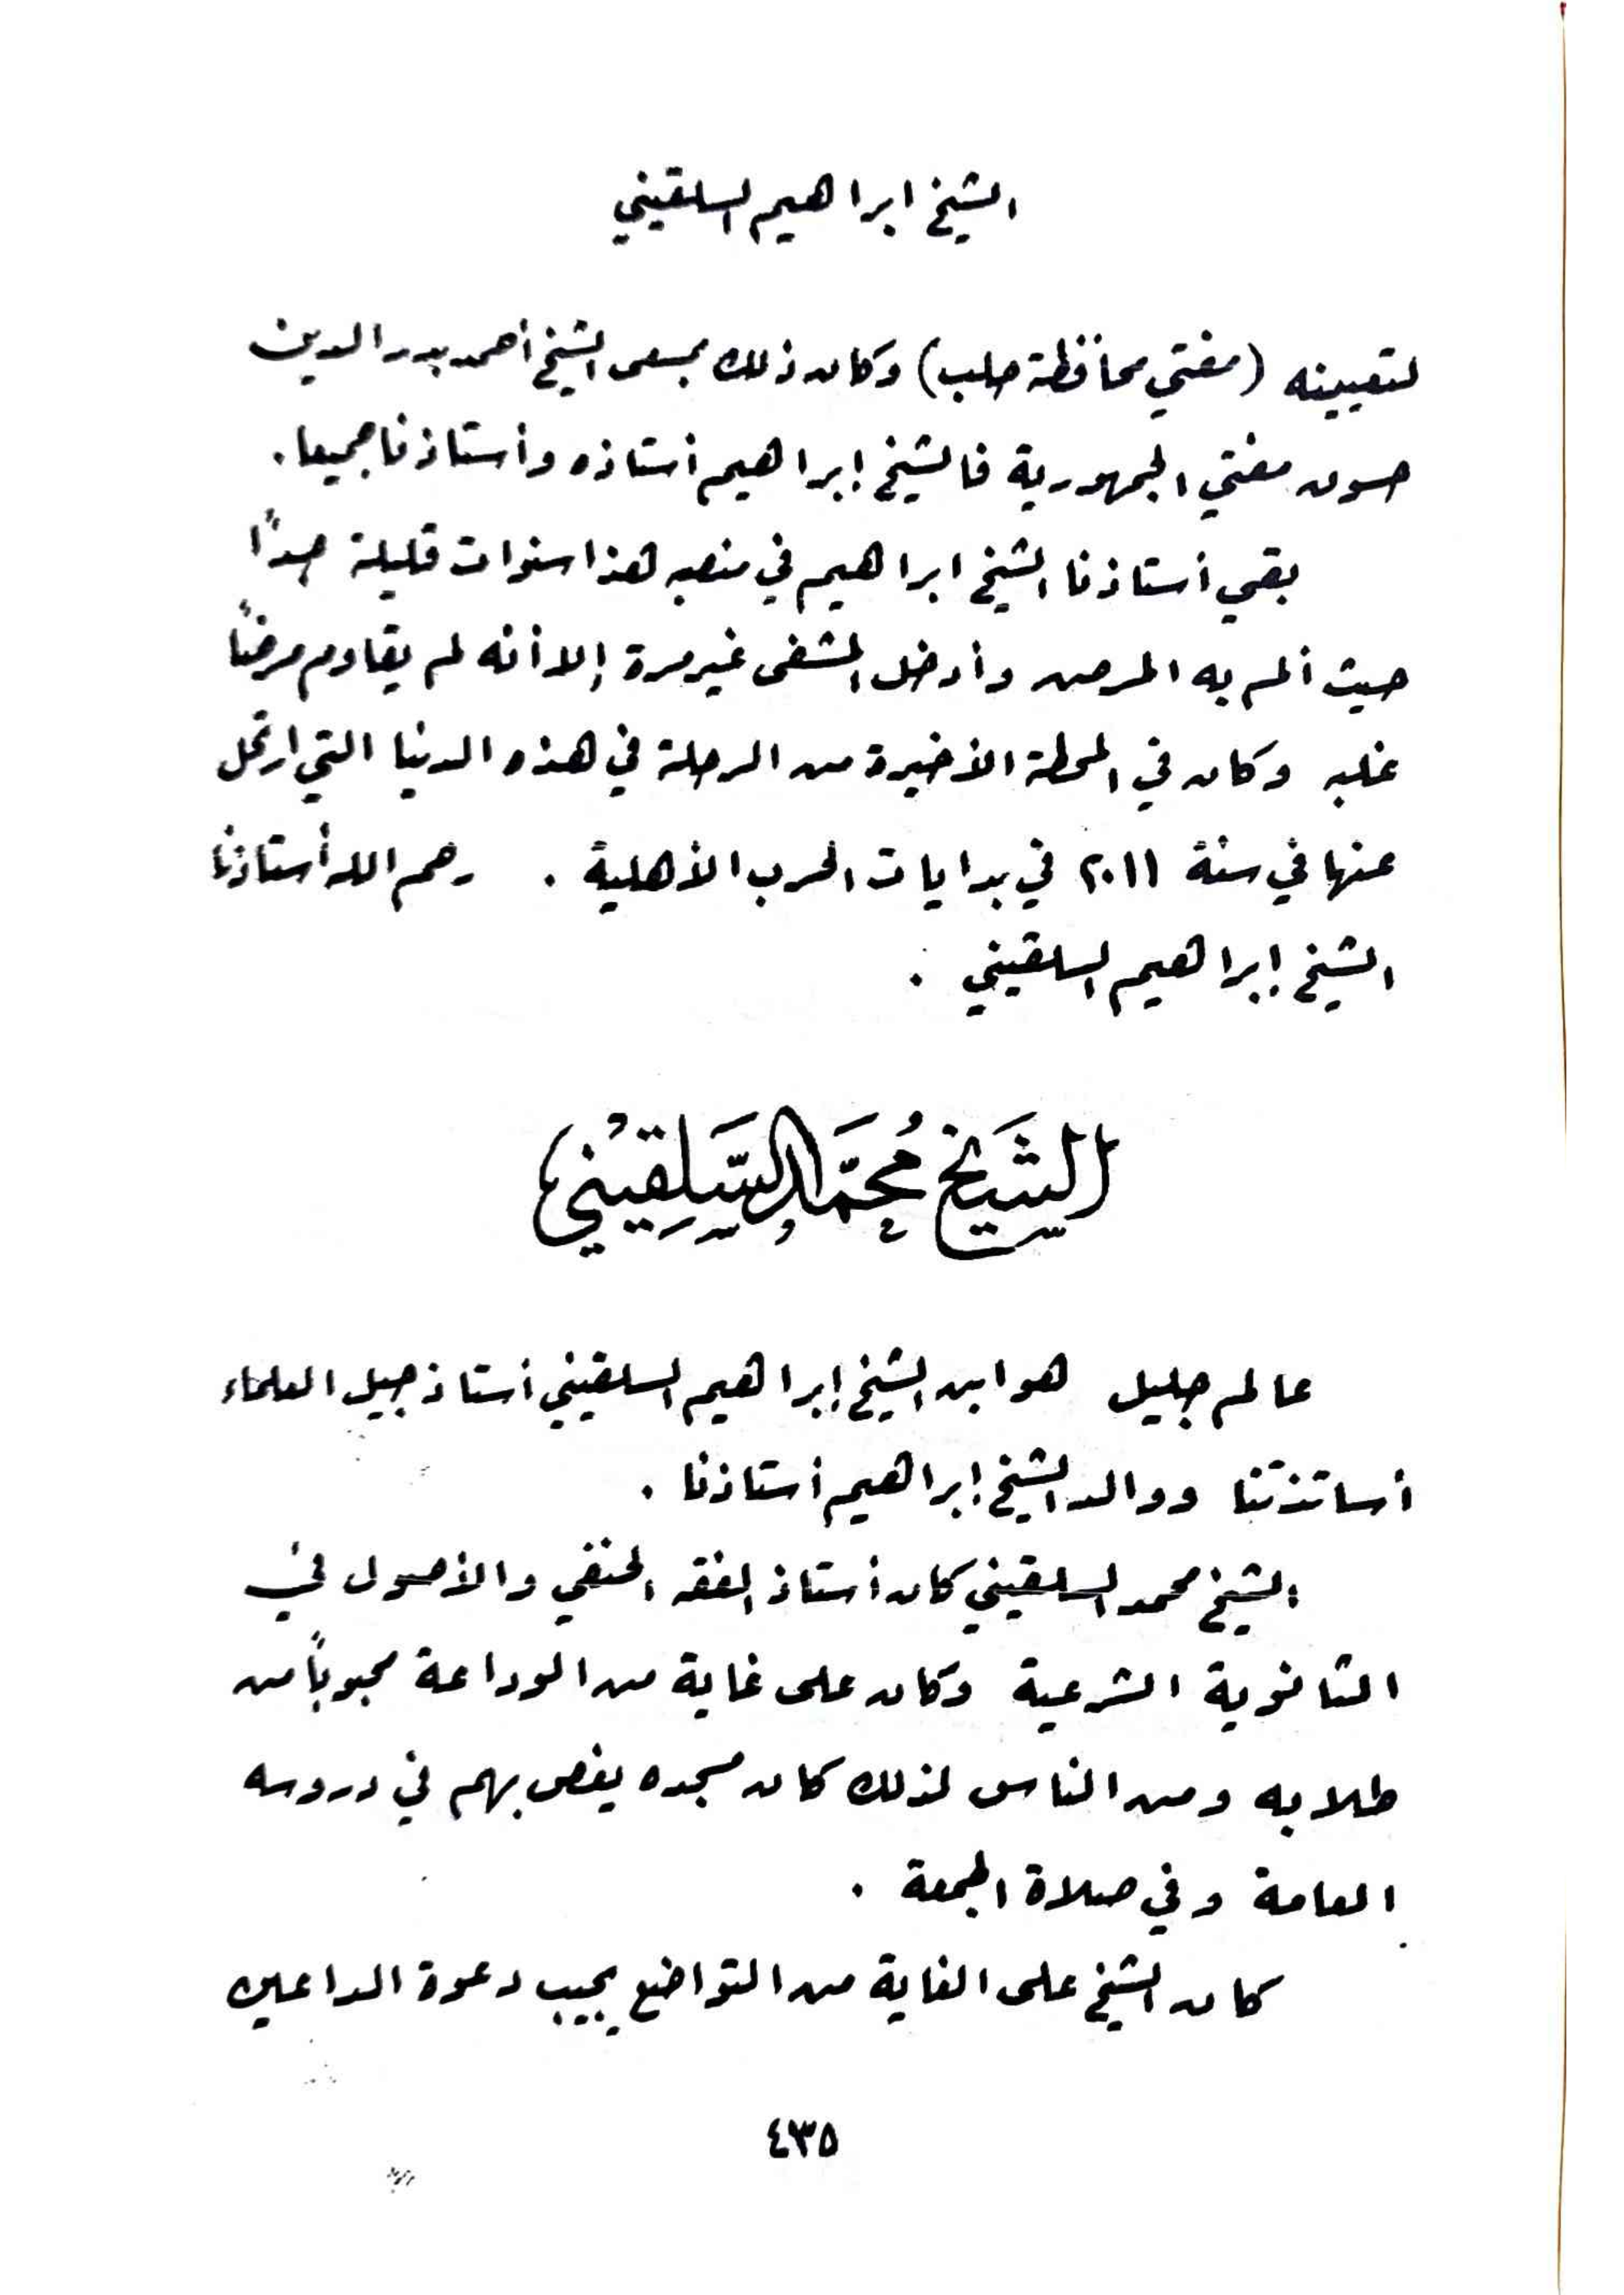 الشيخ ابراهيم السلقيني
لتعيينه (مفتي محافظة حلب) وكان ذلك بمسعى الشيخ أحمد بدر الدين
حسون مفتي الجمهورية فالشيخ إبراهيم أستاذه وأستاذنا جميعا.
بقي أستاذنا الشيخ ابراهيم في منصبه هذا سنوات قليلة جداً
حيث ألم به المرض وأدخل المشفى غير مرة إلا أنه لم يقاوم مرضاً
غلبه وكان في المحطة الأخيرة من الرحلة في هذه الدنيا التي ارتحل
عنها في سنة ٢٠١١ في بدايات الحرب الأهلية . رحم الله أستاذنا
الشيخ إبراهيم السلقيني .
الشَيخ مُحمَّد السَّلقِيْني
عالم جليل هو ابن الشيخ إبراهيم السلقيني أستاذ جيل العلماء
أساتذتنا ووالد الشيخ إبراهيم أستاذنا .
الشيخ محمد السلقيني كان أستاذ الفقه الحنفي والأصول في
الثانوية الشرعية وكان على غاية من الوداعة محبوباً من
طلابه ومن الناس لذلك كان مسجده يغص بهم في دروسه
العامة وفي صلاة الجمعة .
كان الشيخ على الغاية من التواضع يجيب دعوة الداعين
٤٣٥